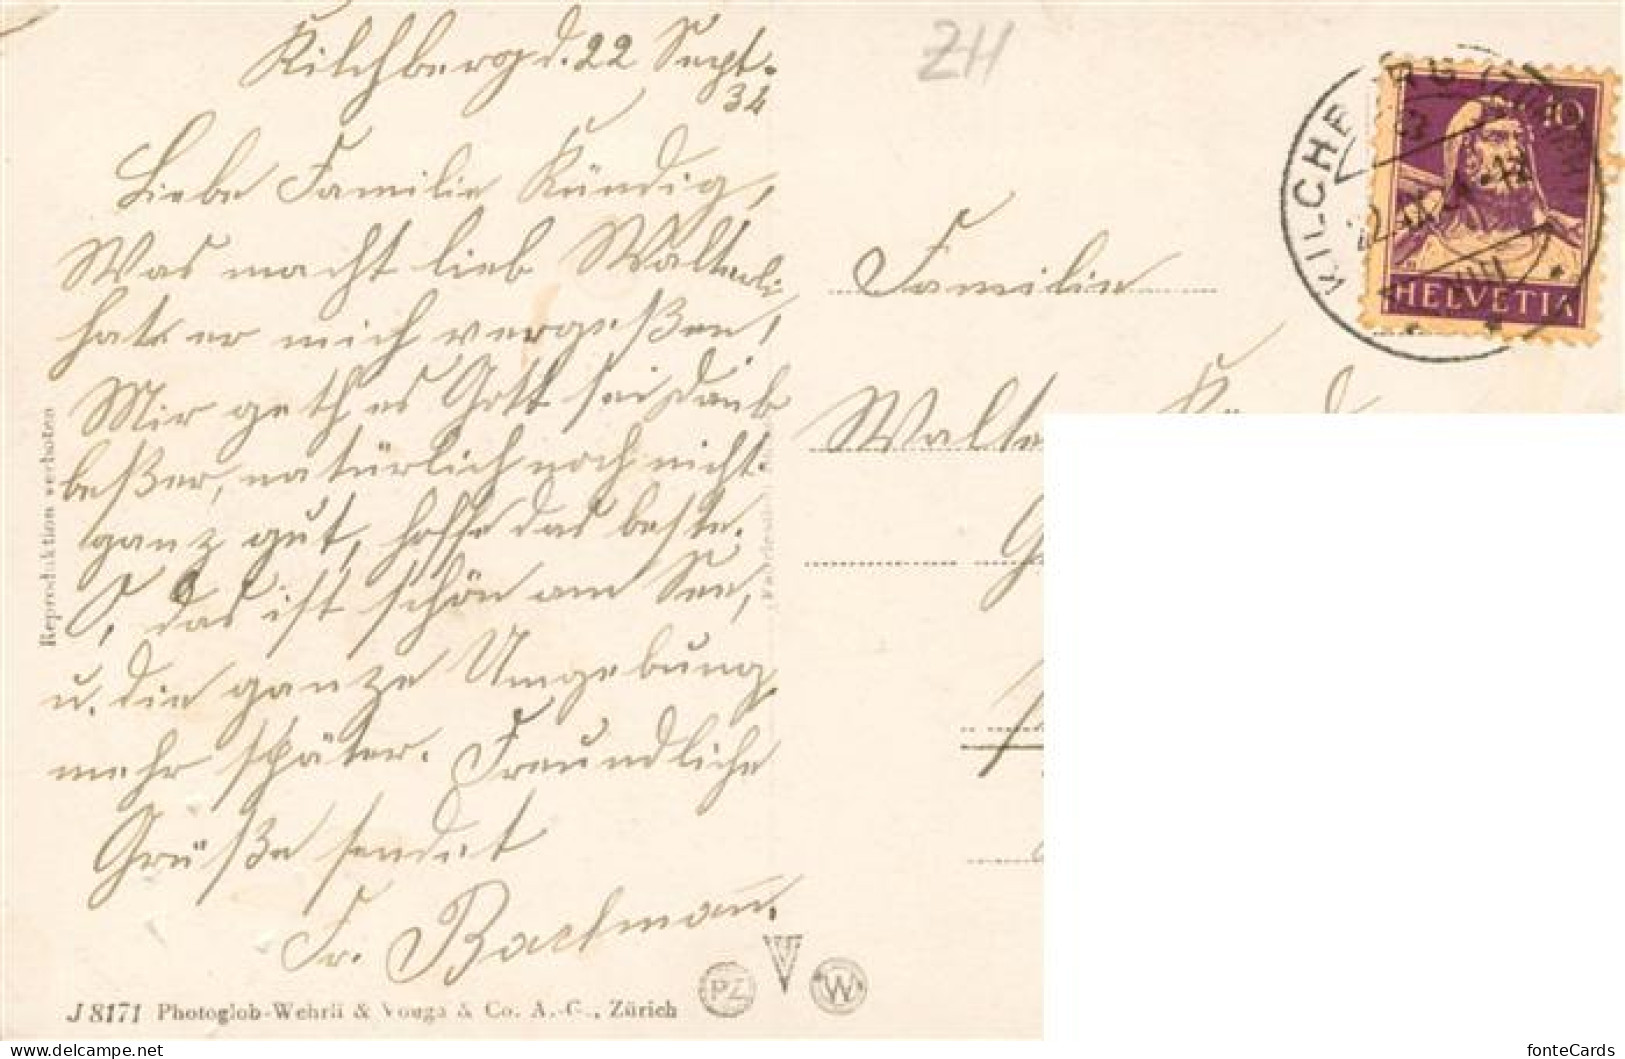 Kilchberg d. 22 Sept.
34
ZH
Liebe Familie Kündig,
Was macht lieb Walterli
hat er mich vergeßen,
Mir geth es Gott sei Dank
beßer, natürlich noch nicht
ganz gut, hoffe das beste.
O, das ist schön am See,
u. die ganze Umgebung,
mehr später. Freundliche
Grüße sendet
Fr. Bachmann.
Familie
KILCHBERG (ZÜRICH)
10
HELVETIA
Reproduktion verboten
J 8171 Photoglob-Wehrli & Vouga & Co. A.-G., Zürich
PZ
W
delcampe.net
fonteCards